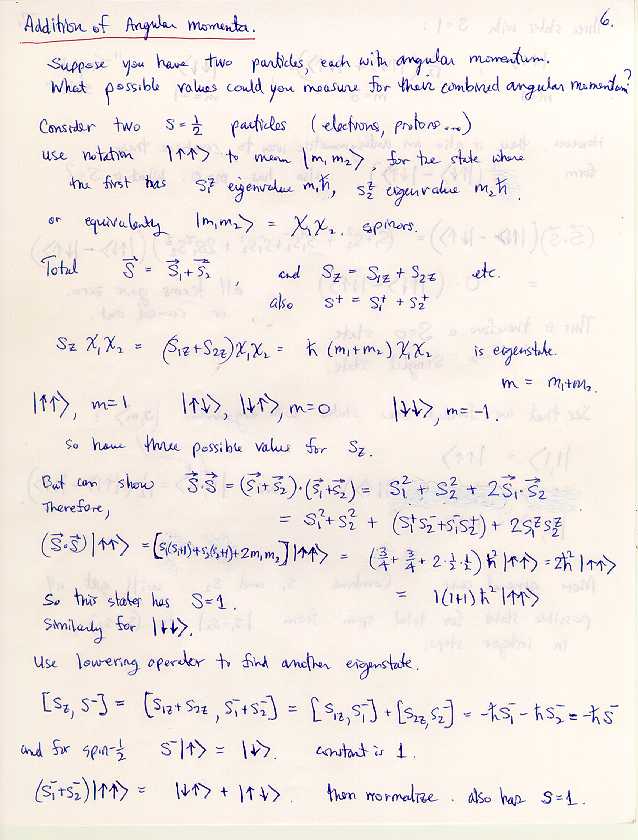 6.
Addition of Angular Momenta.
Suppose you have two particles, each with angular momentum.
What possible values could you measure for their combined angular momentum?
Consider two S=½ particles (electrons, protons...)
Use notation |↑↑⟩ to mean |m₁ m₂⟩ for the state where
the first has S₁ᶻ eigenvalue m₁ħ, S₂ᶻ eigenvalue m₂ħ.
or equivalently |m₁m₂⟩ = χ₁χ₂. spinors.
Total S⃗ = S⃗₁+S⃗₂, and S_z = S₁z + S₂z etc.
also S⁺ = S₁⁺ + S₂⁺
S_z χ₁χ₂ = (S₁z+S₂z)χ₁χ₂ = ħ (m₁+m₂) χ₁χ₂ is eigenstate.
m = m₁+m₂.
|↑↑⟩, m=1 |↑↓⟩, |↓↑⟩, m=0 |↓↓⟩, m=-1.
So have three possible values for S_z.
But can show S⃗·S⃗ = (S⃗₁+S⃗₂)·(S⃗₁+S⃗₂) = S₁² + S₂² + 2S⃗₁·S⃗₂
Therefore, = S₁²+S₂² + (S₁⁺S₂⁻+S₁⁻S₂⁺) + 2S₁ᶻS₂ᶻ
(S⃗·S⃗)|↑↑⟩ = [s₁(s₁+1)+s₂(s₂+1)+2m₁m₂]|↑↑⟩ = (¾+¾+2·½·½)ħ²|↑↑⟩ = 2ħ²|↑↑⟩
So this state has S=1. = 1(1+1)ħ²|↑↑⟩
Similarly for |↓↓⟩.
Use lowering operator to find another eigenstate.
[S_z, S⁻] = [S₁z+S₂z, S₁⁻+S₂⁻] = [S₁z,S₁⁻] + [S₂z,S₂⁻] = -ħS₁⁻ - ħS₂⁻ = -ħS⁻
and for spin-½ S⁻|↑⟩ = |↓⟩. constant is 1.
(S₁⁻+S₂⁻)|↑↑⟩ = |↓↑⟩ + |↑↓⟩. then normalize. also has S=1.